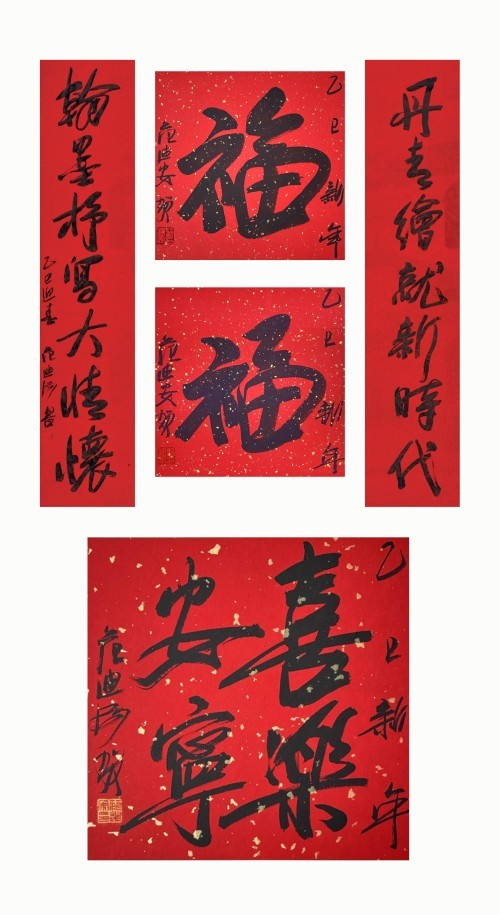 丹青繪就新時代
乙巳新年
福
范迪安賀
乙巳新年
福
范迪安賀
翰墨抒寫大情懷
乙巳迎春 范迪安書
乙巳新年
喜樂
安寧
范迪安賀